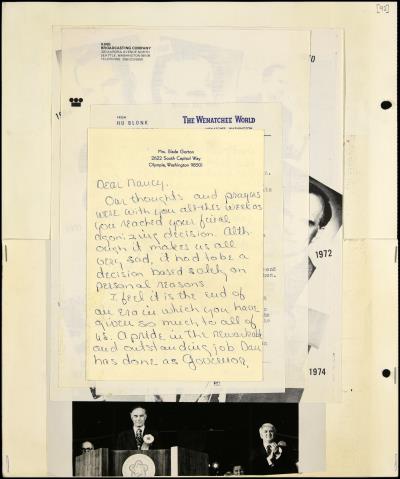 [92]
KING
BROADCASTING COMPANY
320 AURORA AVENUE NORTH
SEATTLE, WASHINGTON 98109
FROM
HU BLONK
THE WENATCHEE WORLD
WENATCHEE, WASHINGTON
Mrs. Slade Gorton
2622 South Capitol Way
Olympia, Washington 98501
Dear Nancy,
Our thoughts and prayers
were with you all this week as
you reached your final
agonizing decision. Alth-
ough it makes us all
very sad, it had to be a
decision based solely on
personal reasons
I feel it is the end of
an era in which you have
given so much to all of
us. A pride in the remarkable
and outstanding job Dan
has done as Governor,
1972
1974